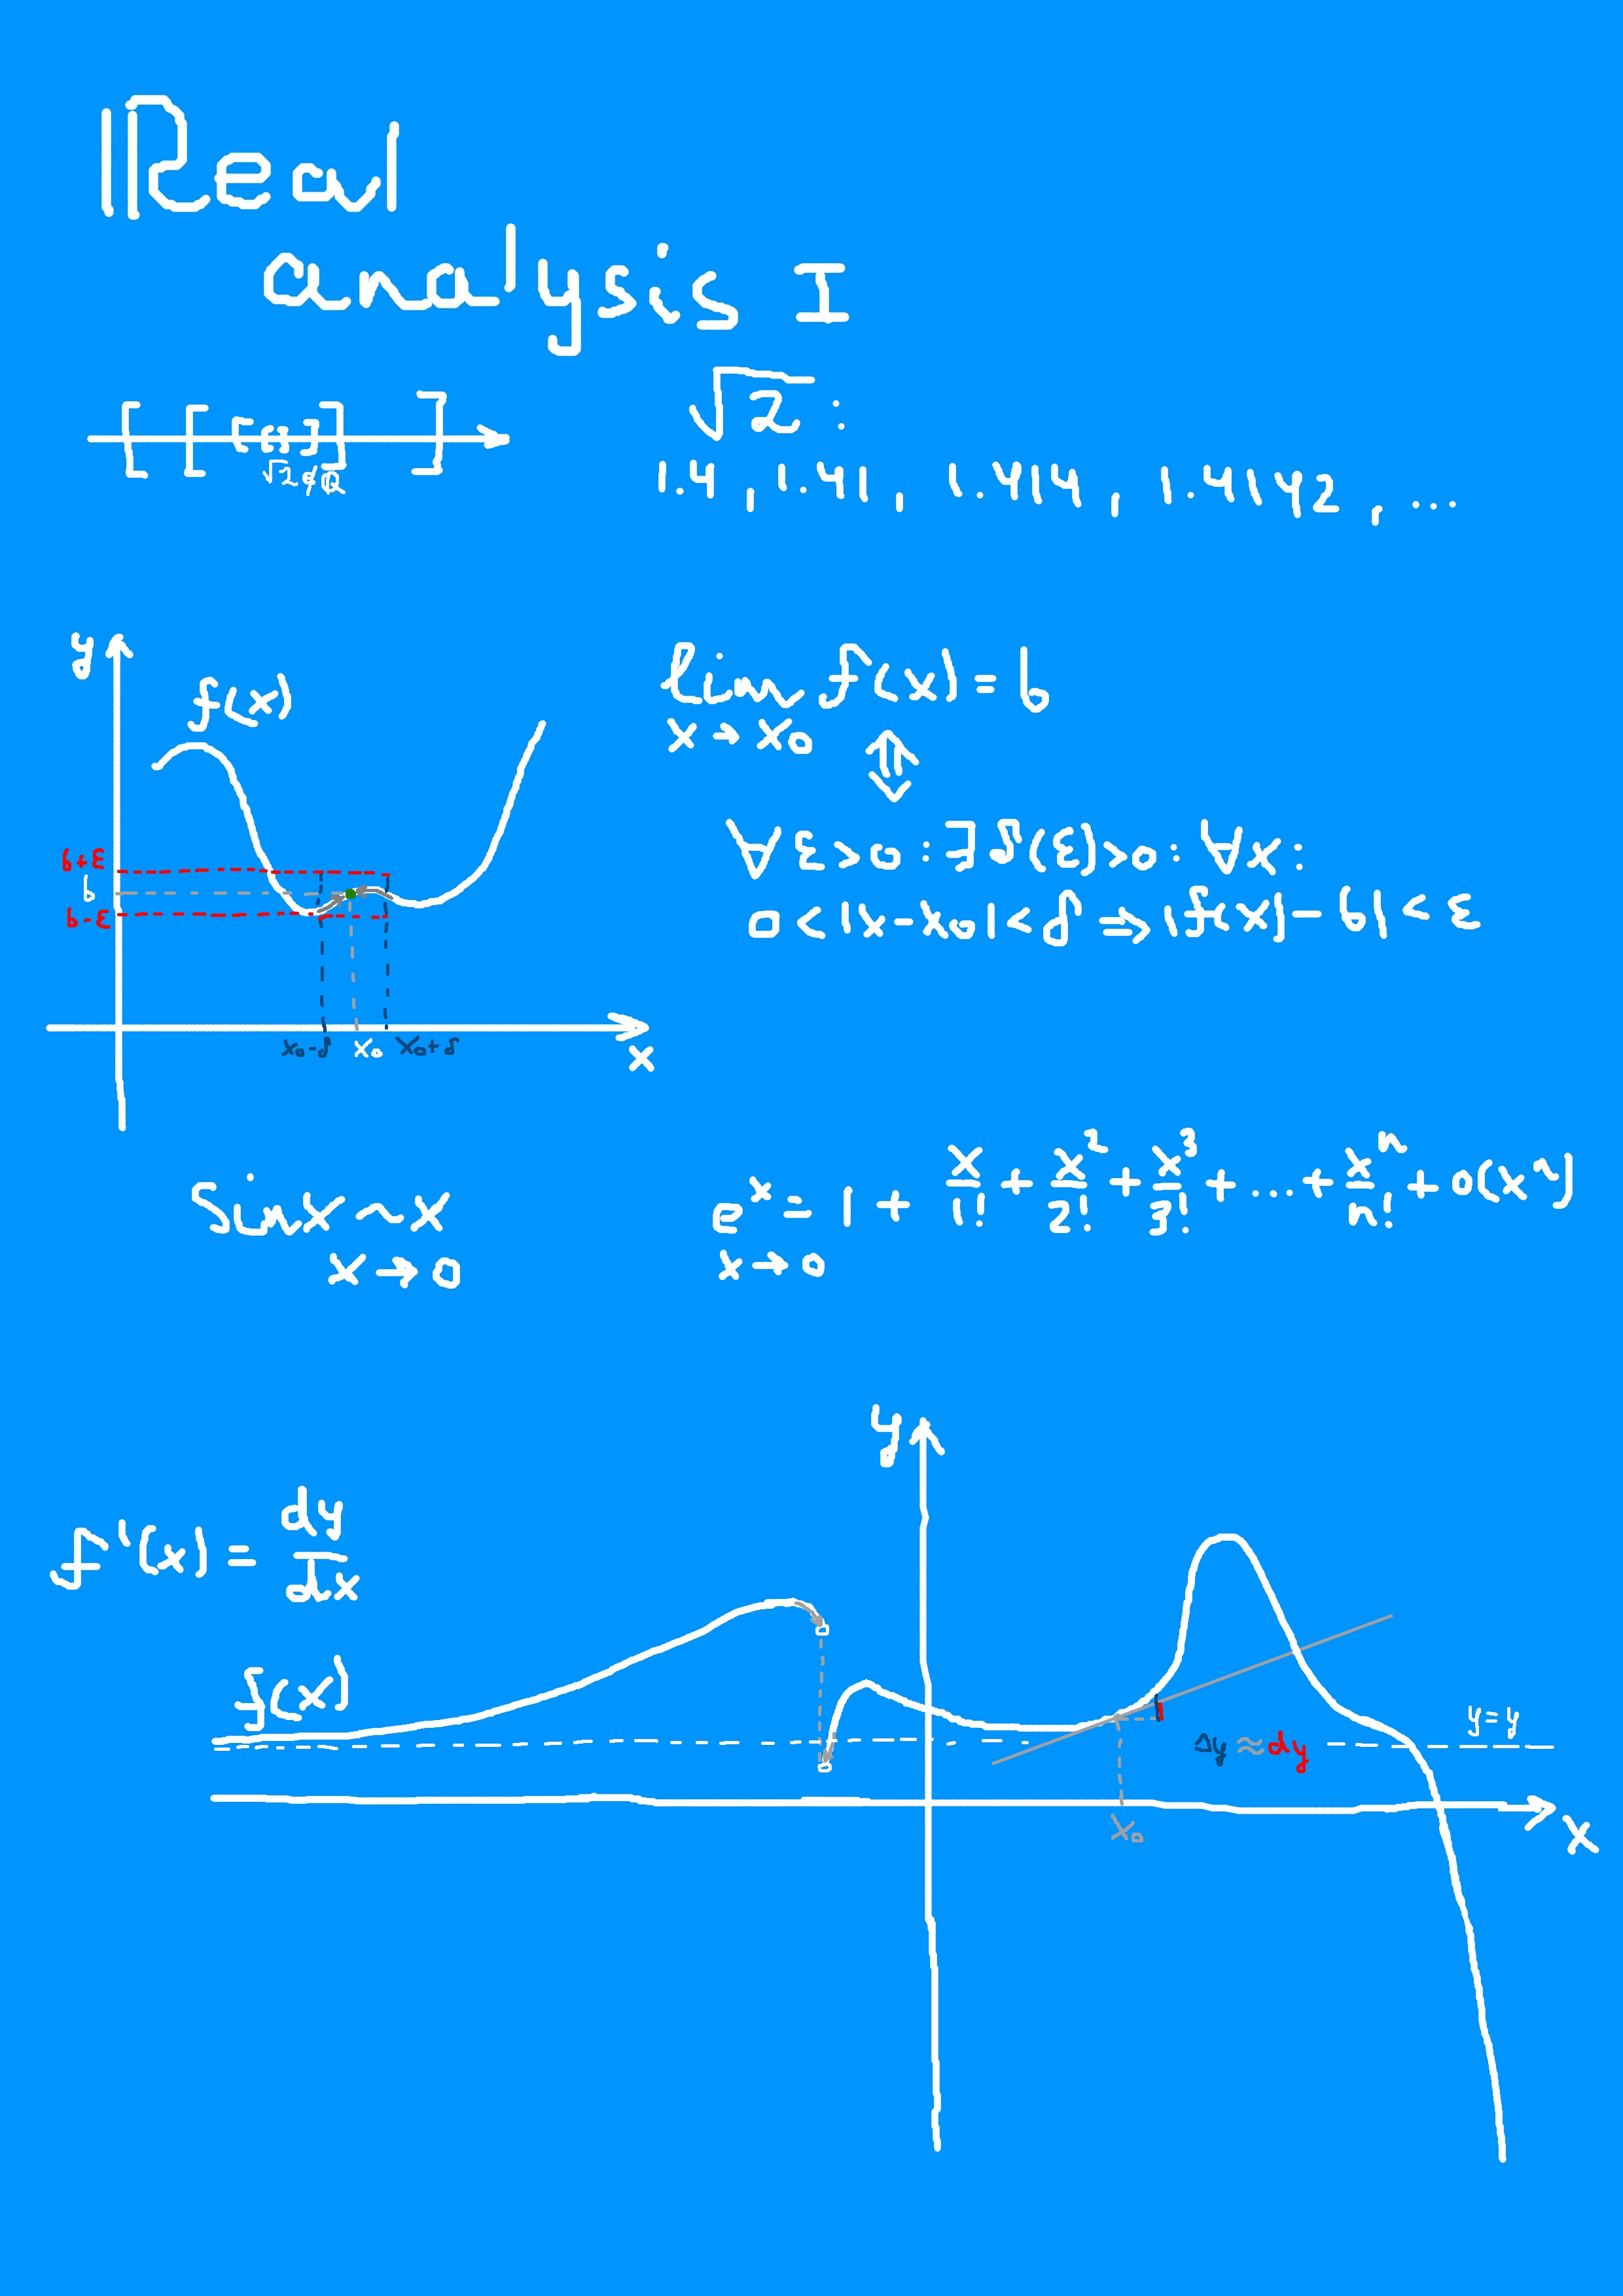 ℝeal
analysis I
√2 ∉ ℚ
√2 :
1.4, 1.41, 1.414, 1.4142, ...
y
f(x)
b+ε
b
b-ε
x₀-δ x₀ x₀+δ
x
lim f(x) = b
x→x₀
⇕
∀ε>0 : ∃δ(ε)>0 : ∀x :
0<|x-x₀|<δ ⇒ |f(x)-b|<ε
sin x ~ x
x→0
eˣ = 1 + x/1! + x²/2! + x³/3! + ... + xⁿ/n! + o(xⁿ)
x→0
f'(x) = dy/dx
y
f(x)
y=y
Δy ≈ dy
x₀
x